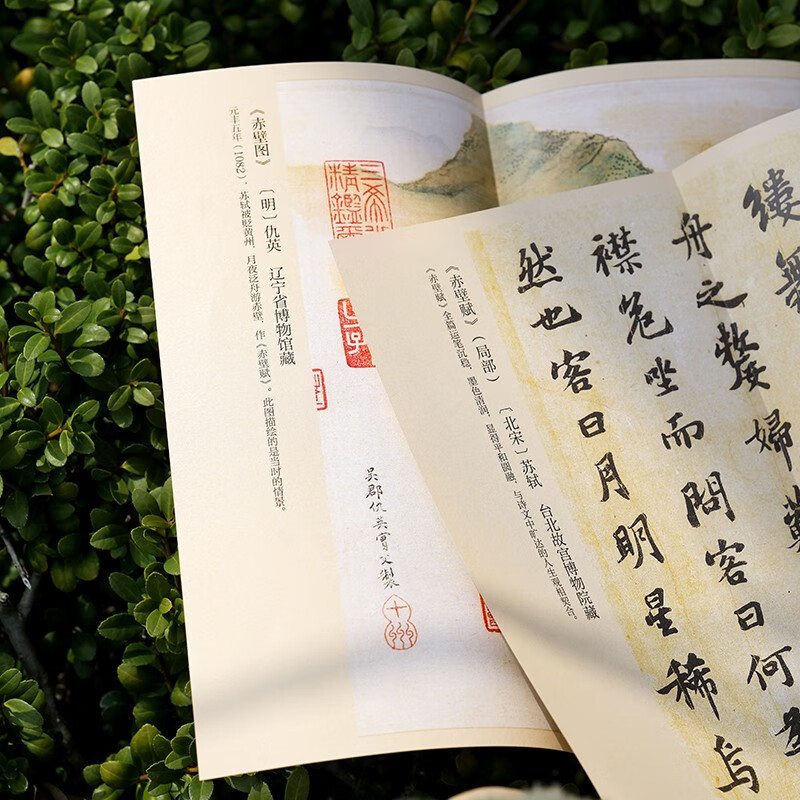 《赤壁图》 〔明〕仇英 辽宁省博物馆藏
元丰五年（1082），苏轼被贬黄州，月夜泛舟游赤壁，作《赤壁赋》。此图描绘的是当时的情景。
吴郡仇英實父製
十洲
《赤壁赋》（局部） 〔北宋〕苏轼 台北故宫博物院藏
《赤壁赋》全篇运笔沉稳，墨色清润，显得平和圆融，与诗文中旷达的人生观相契合。
縷舞
舟之嫠婦蘇
襟危坐而問客曰何為
然也客曰月明星稀烏